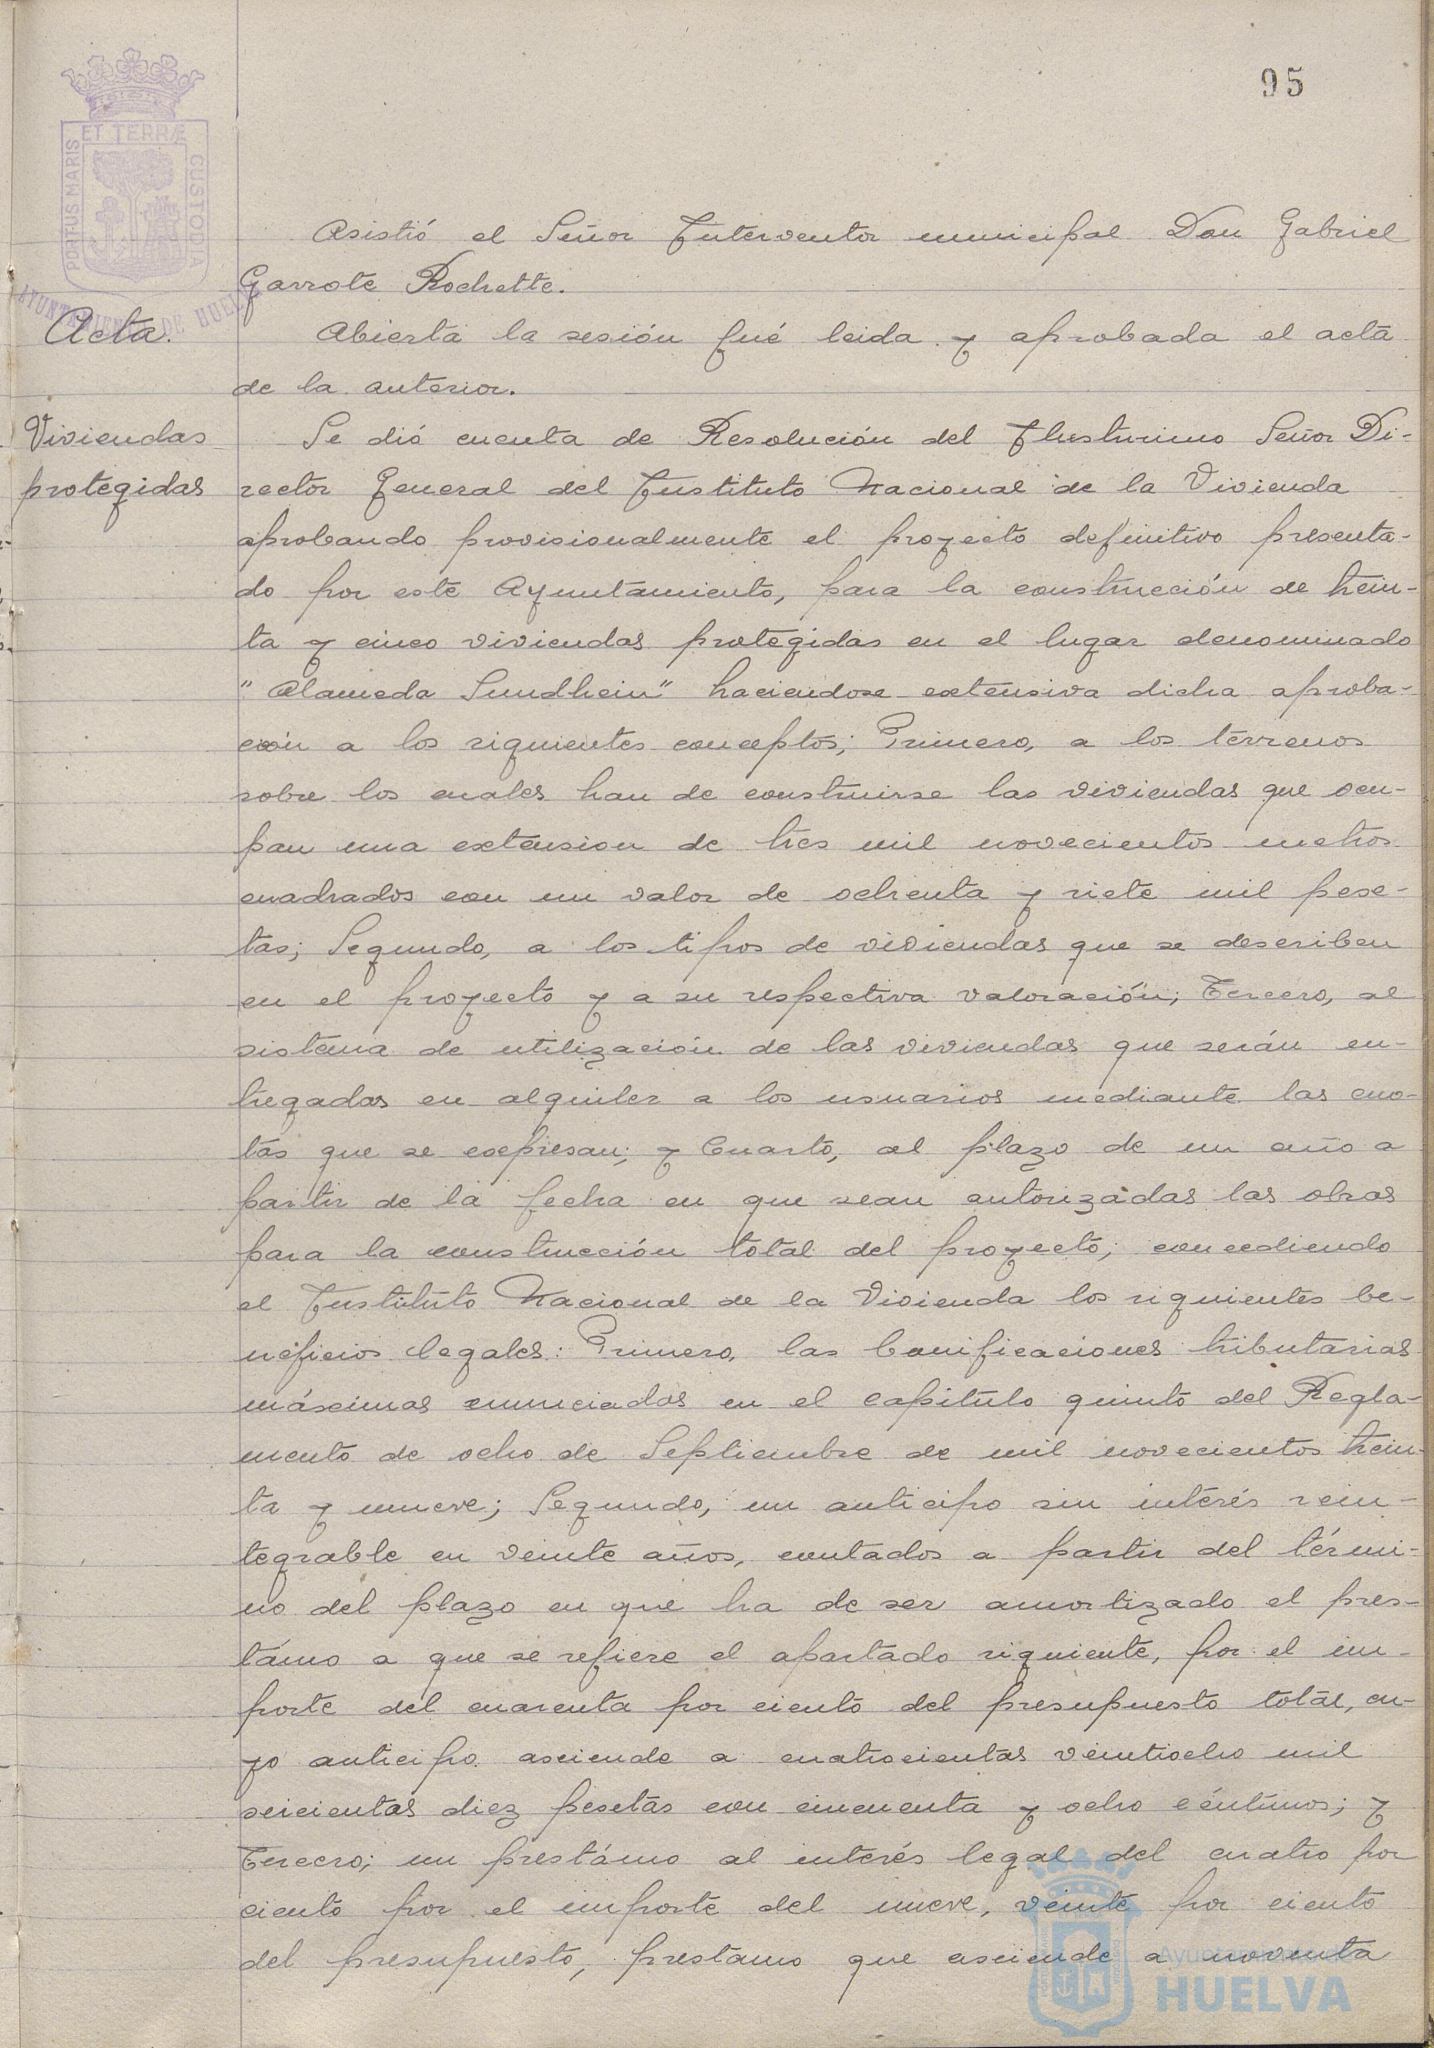 95
PORTUS MARIS ET TERRÆ CUSTODIA
AYUNTAMIENTO DE HUELVA
Asistió el Señor Interventor municipal Don Gabriel
Garrote Rochette.
Acta.
Abierta la sesión fué leida y aprobada el acta
de la anterior.
Viviendas
protegidas
Se dió cuenta de Resolución del Ilustrimo Señor Di-
rector General del Instituto Nacional de la Vivienda
aprobando provisionalmente el proyecto definitivo presenta-
do por este Ayuntamiento, para la construcción de trein-
ta y cinco viviendas protegidas en el lugar denominado
"Alameda Sundhein" haciendose extensiva dicha aproba-
ción a los siguientes conceptos; Primero, a los terrenos
sobre los cuales han de construirse las viviendas que ocu-
pan una extension de tres mil novecientos metros
cuadrados con un valor de ochenta y siete mil pese-
tas; Segundo, a los tipos de viviendas que se describen
en el proyecto y a su respectiva valoración; Tercero, al
sistema de utilización de las viviendas que serán en-
tregadas en alquiler a los usuarios mediante las cuo-
tas que se expresan; y Cuarto, al plazo de un año a
partir de la fecha en que sean autorizadas las obras
para la construcción total del proyecto; concediendo
el Instituto Nacional de la Vivienda los siguientes be-
neficios legales: Primero, las bonificaciones tributarias
máximas enunciadas en el capitulo quinto del Regla-
mento de ocho de Septiembre de mil novecientos trein-
ta y nueve; Segundo, un anticipo sin interés rein-
tegrable en veinte años, contados a partir del térmi-
no del plazo en que ha de ser amortizado el pres-
támo a que se refiere el apartado siguiente, por el im-
porte del cuarenta por ciento del presupuesto total, cu-
yo anticipo asciende a cuatrocientas veintiocho mil
seicientas diez pesetas con cincuenta y ocho céntimos; y
Tercero; un prestámo al interés legal del cuatro por
ciento por el importe del nueve, veinte por ciento
del presupuesto, prestamo que asciende a noventa
Ayuntamiento de
HUELVA